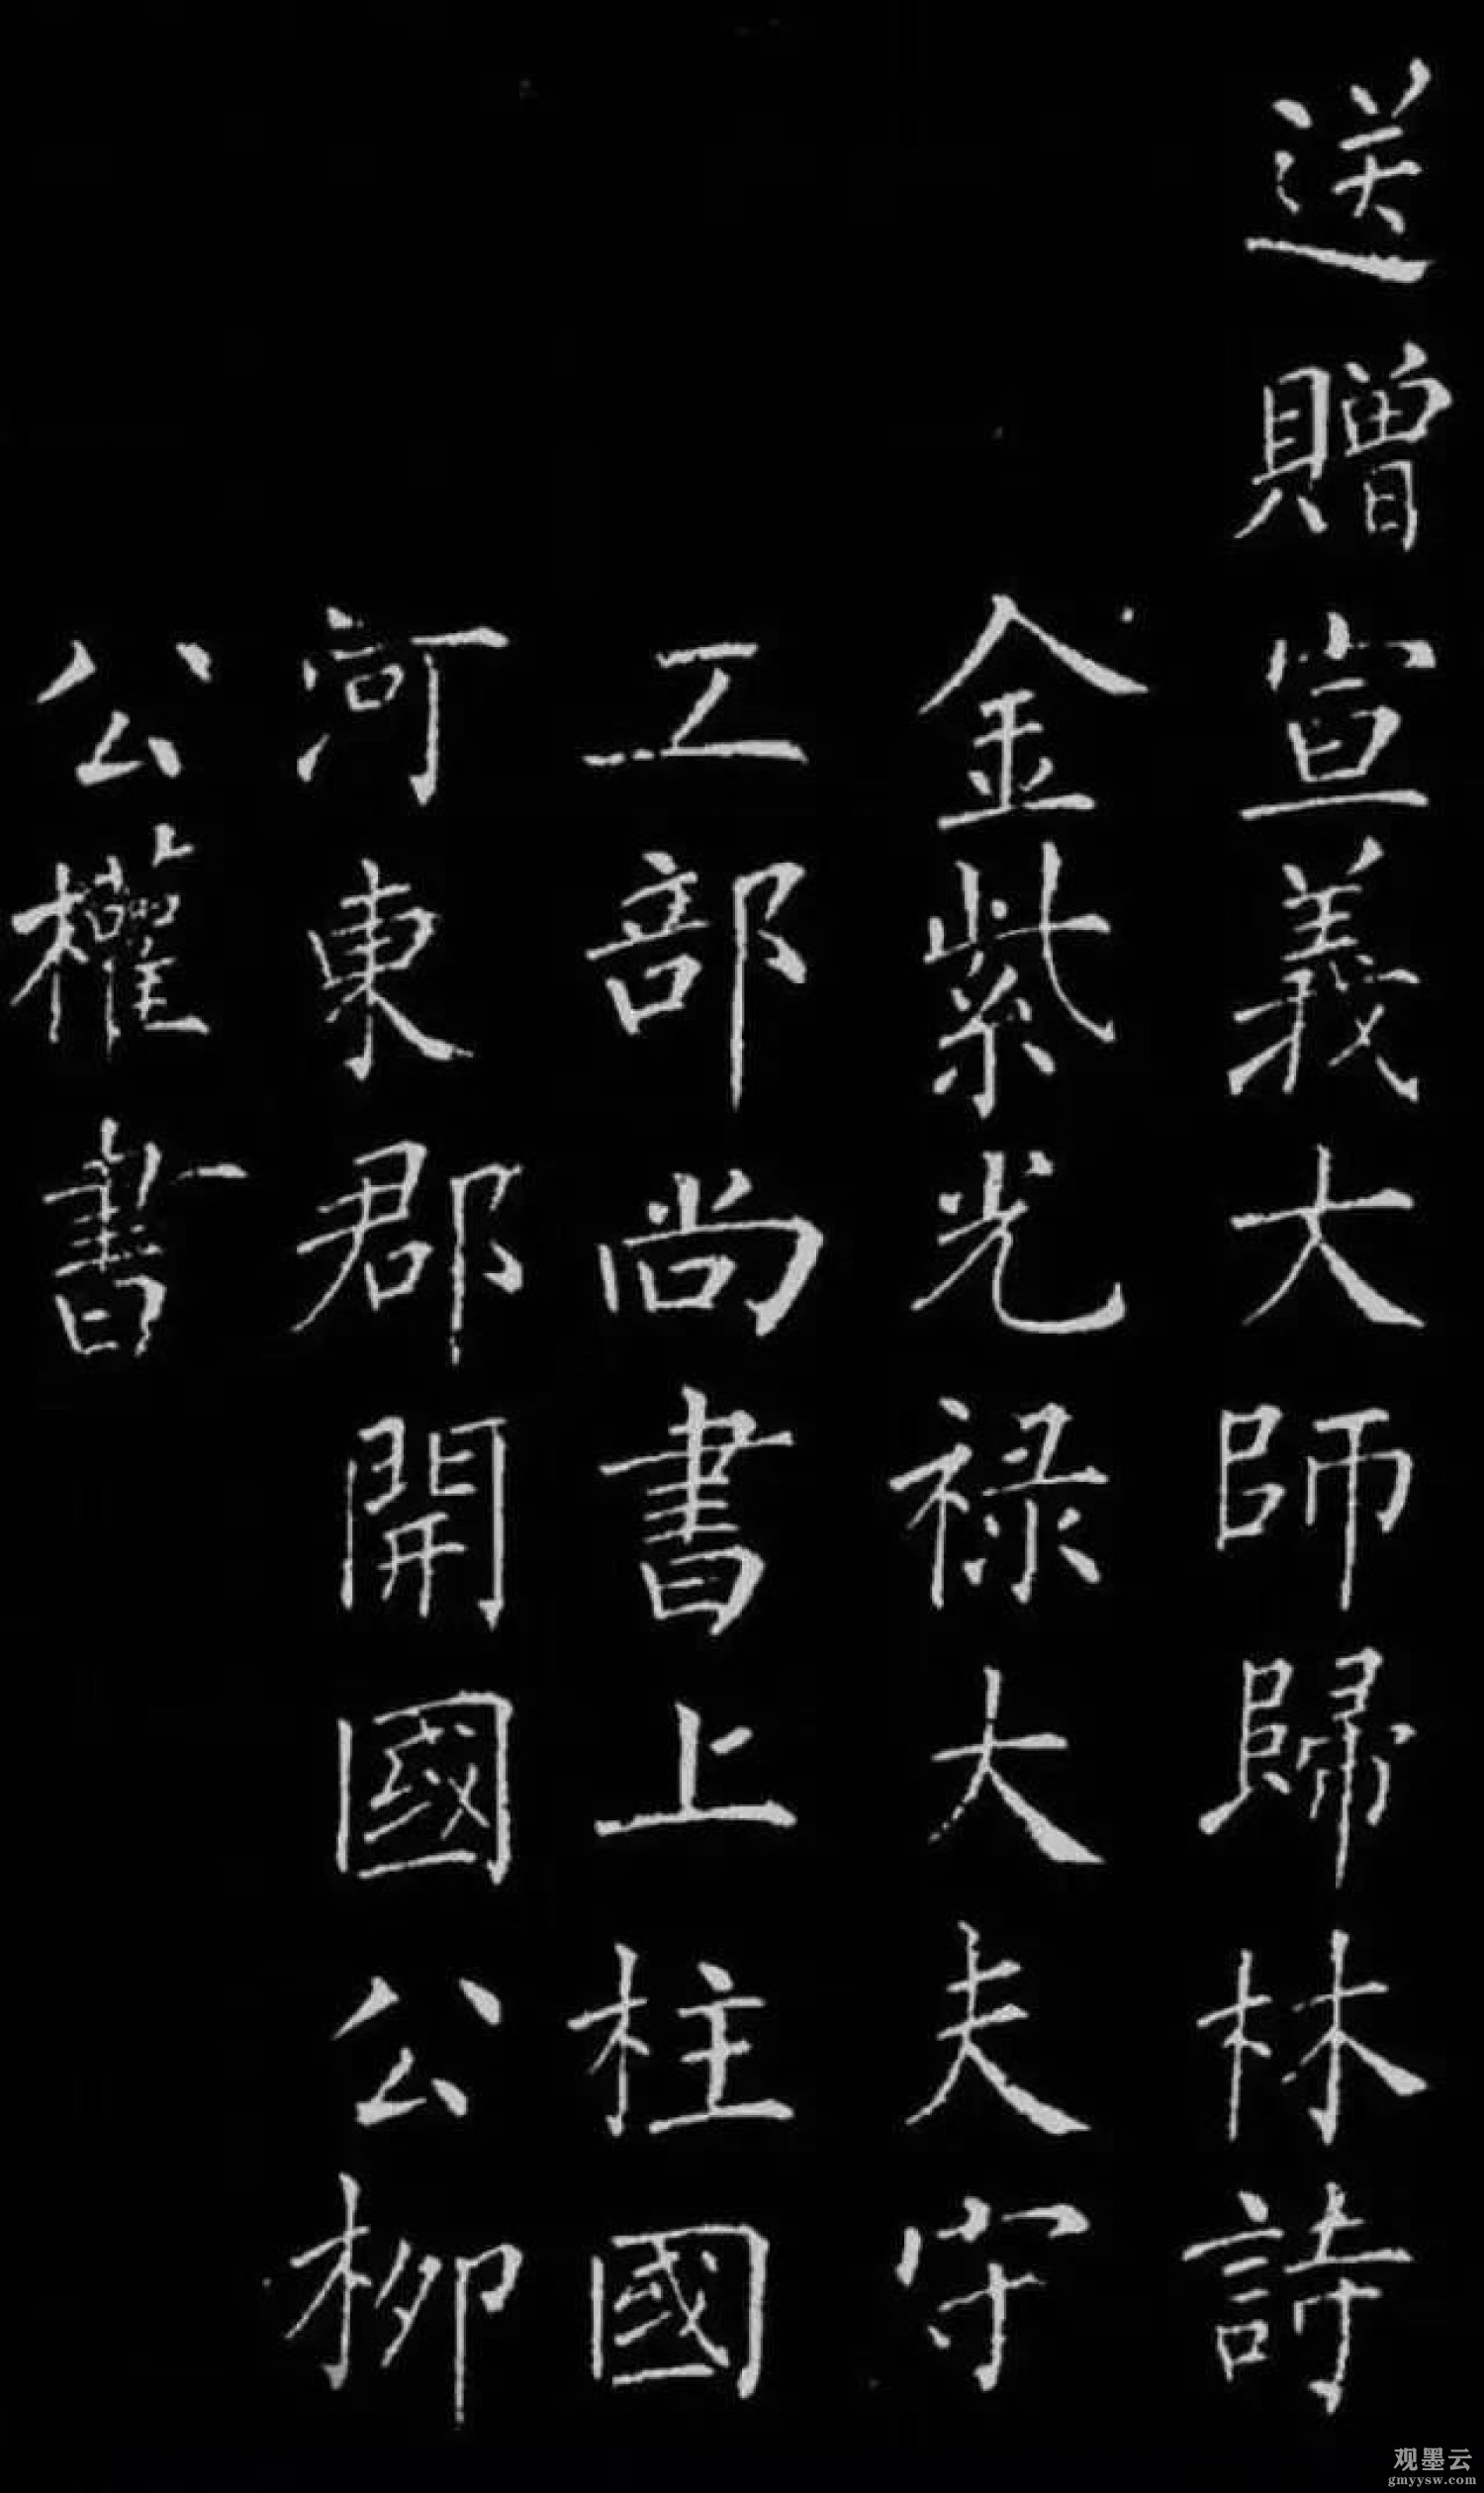 送贈宣義大師歸林詩
金紫光禄大夫守
工部尚書上柱國
河東郡開國公柳
公權書
观墨云
gmyysw.com